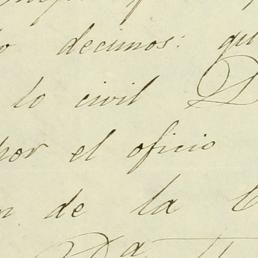 decimos: qu
lo civil D
por el oficio
n de la C
Da